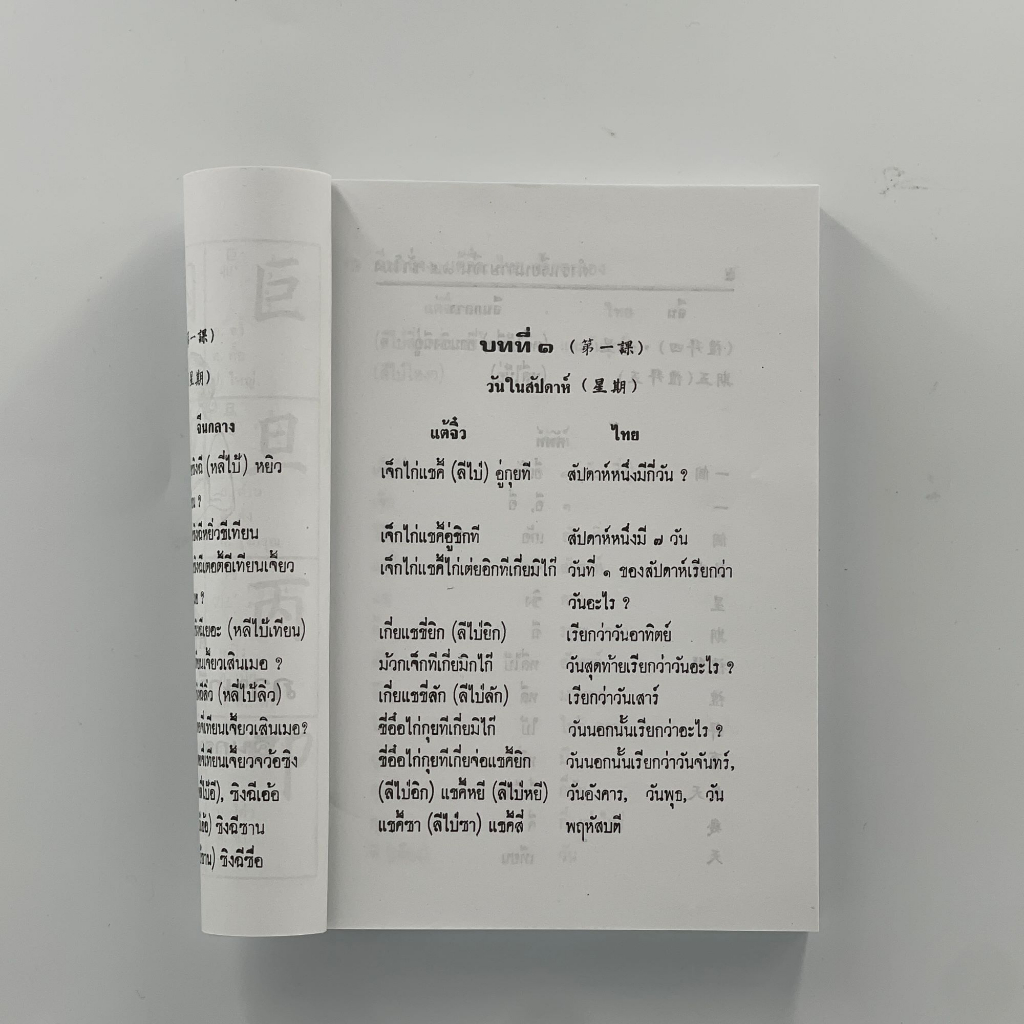 一課)
期)
จีนกลาง
(หลี่ไป้) หยิว
?
ซิงฉีหยิ่วชีเทียน
?
(หลีไป้เทียน)
เจี้ยวเสินเมอ ?
(หลี่ไป้ลิ่ว)
เทียนเจี้ยวเสินเมอ?
เทียนเจี้ยวจว้อซิง
ซิงฉีเอ้อ
ซิงฉีซาน
ซิงฉีซื่อ
บทที่ ๑ (第一課)
วันในสัปดาห์ (星期)
แต้จิ๋ว ไทย
เจ็กไก่แชคี้ (ลีไป่) อู่กุยที สัปดาห์หนึ่งมีกี่วัน ?
เจ็กไก่แชคี้อู่ชิกที สัปดาห์หนึ่งมี ๗ วัน
เจ็กไก่แชคี้ไก่เต่ยอิกทีเกี่ยมิไก๊ วันที่ ๑ ของสัปดาห์เรียกว่า
วันอะไร ?
เกี่ยแชชี่ยิก (ลีไป่ยิก) เรียกว่าวันอาทิตย์
ม้วกเจ็กทีเกี่ยมิกไก๊ วันสุดท้ายเรียกว่าวันอะไร ?
เกี่ยแชชี่ลัก (ลีไป่ลัก) เรียกว่าวันเสาร์
ชี่อื้อไก่กุยทีเกี่ยมิไก๊ วันนอกนั้นเรียกว่าอะไร ?
ชี่อื้อไก่กุยทีเกี่ยจ่อแชคี้ยิก วันนอกนั้นเรียกว่าวันจันทร์,
(ลีไป่อิก) แชคี้หยี (ลีไป่หยี) วันอังคาร, วันพุธ, วัน
แชคี้ซา (ลีไป่ซา) แชคี้สี่ พฤหัสบดี